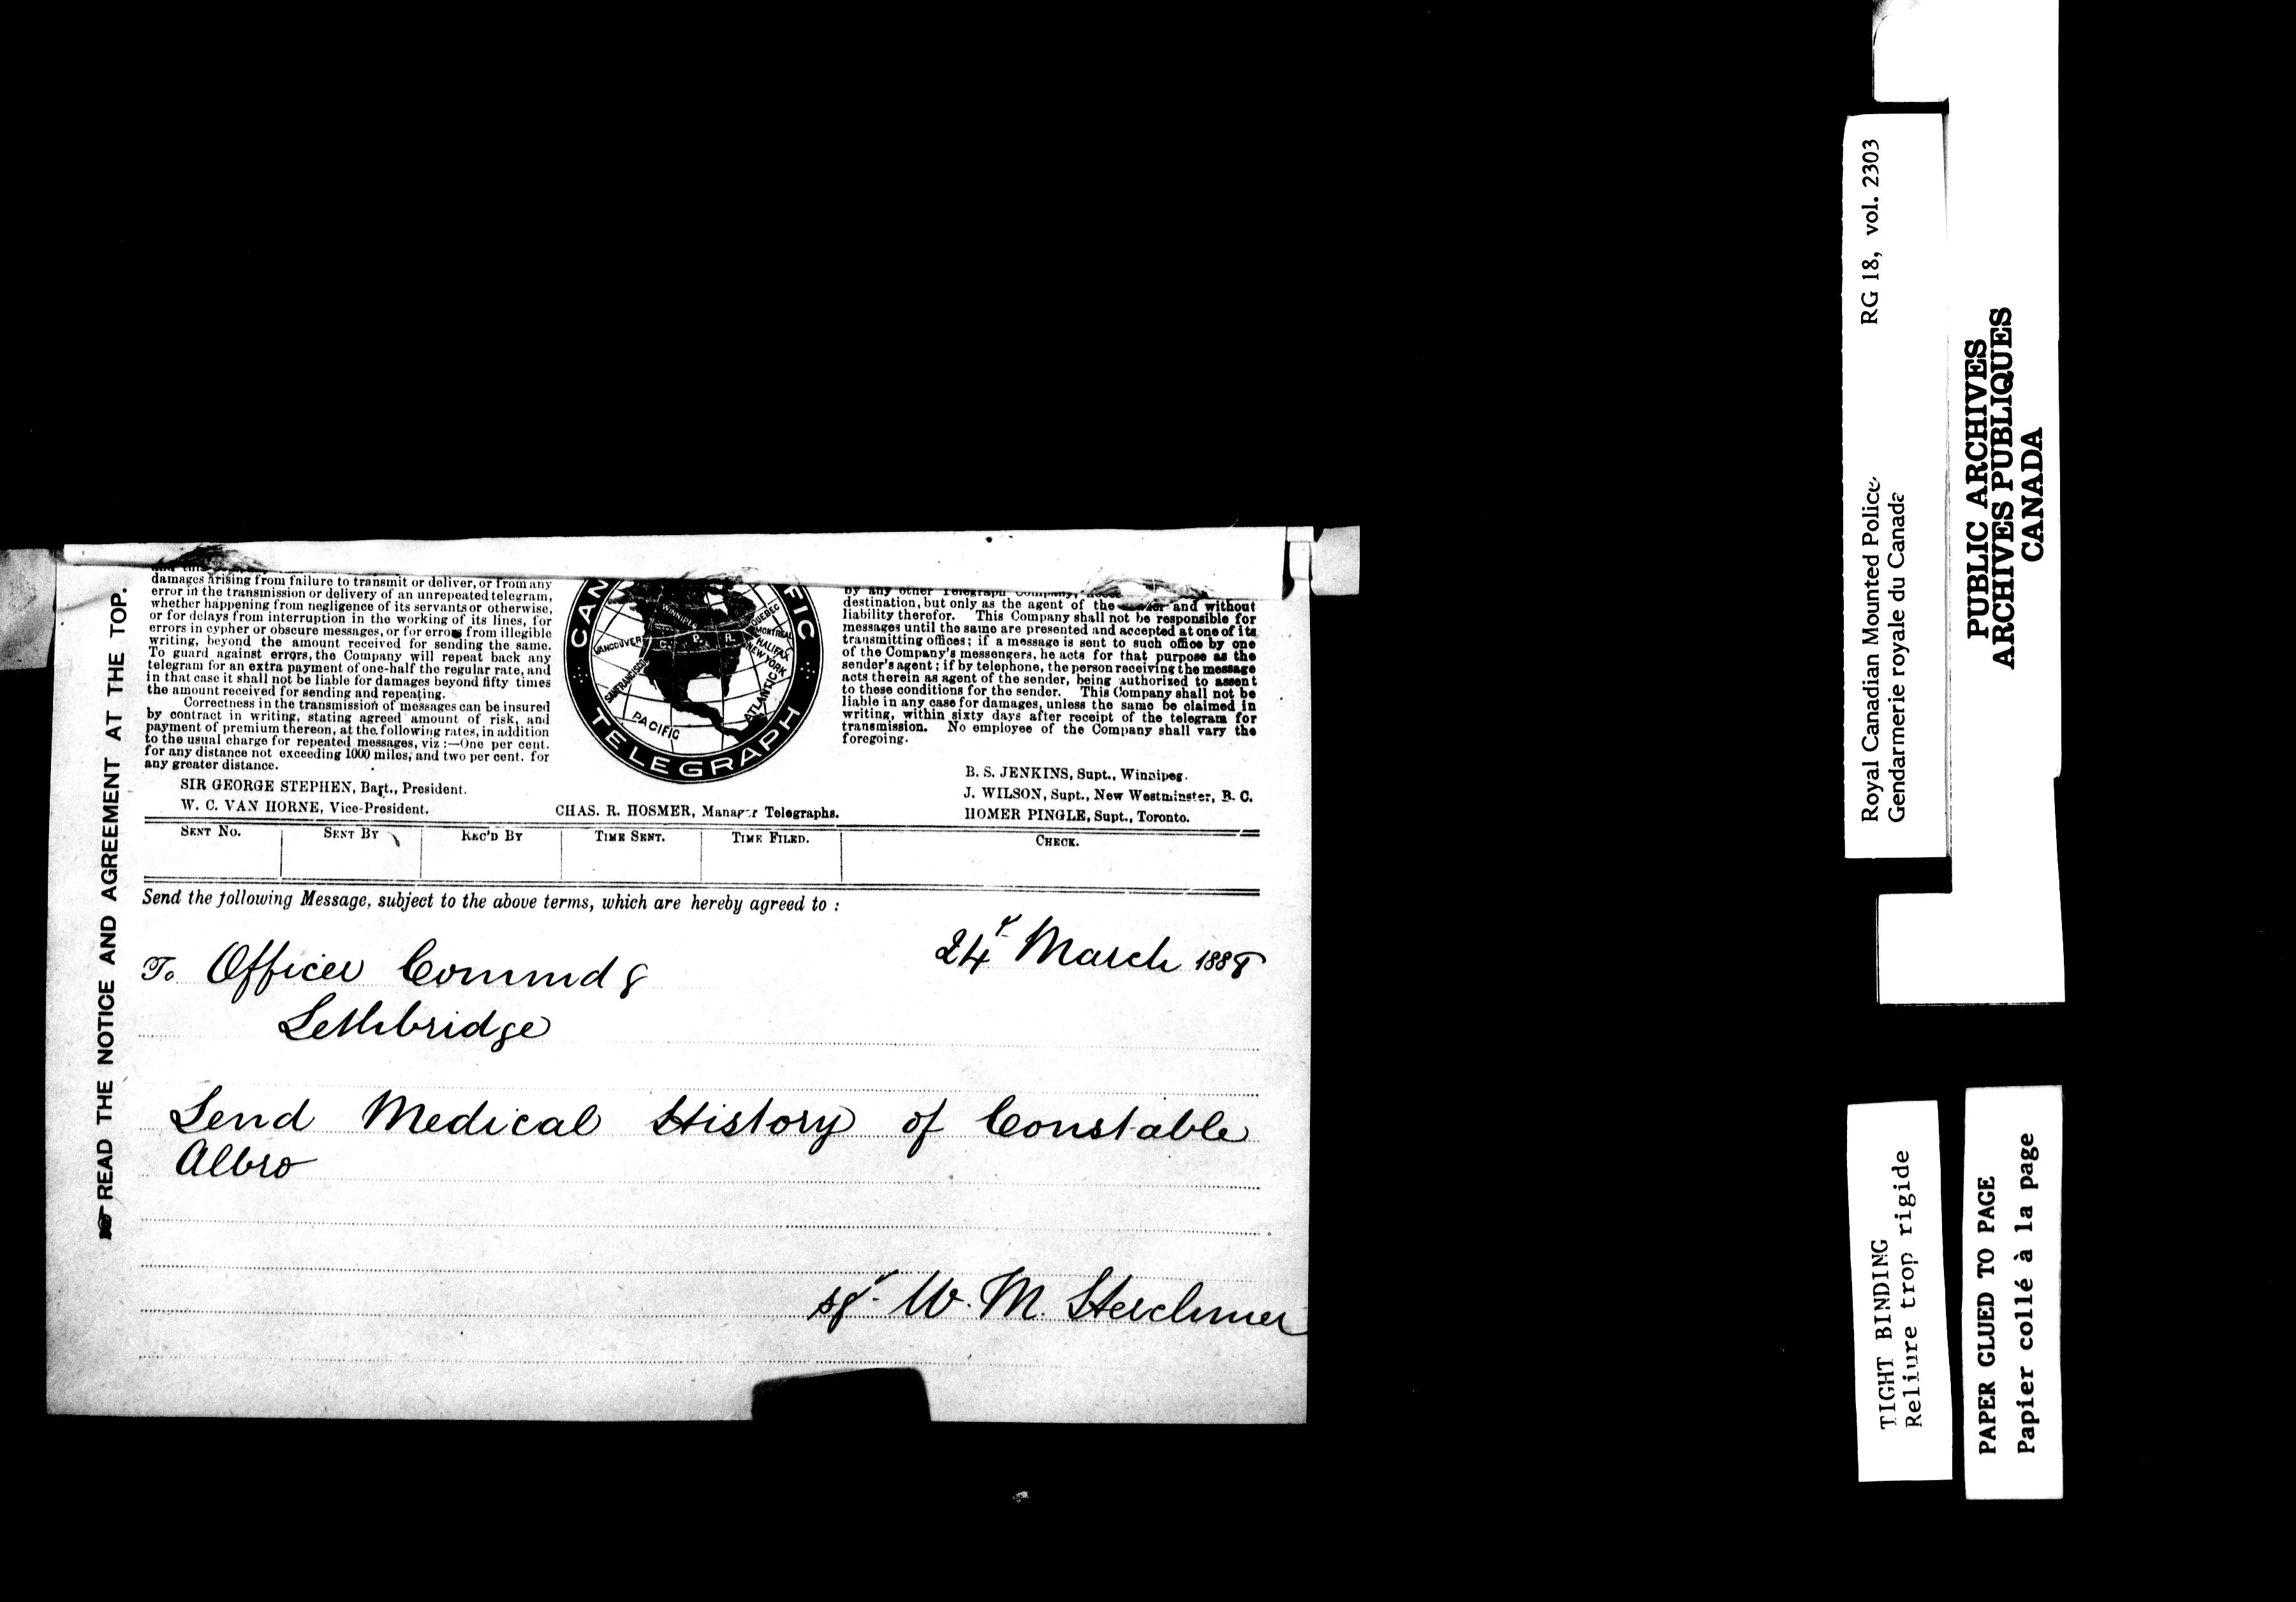 READ THE NOTICE AND AGREEMENT AT THE TOP.
damages arising from failure to transmit or deliver, or from any
error in the transmission or delivery of an unrepeated telegram,
whether happening from negligence of its servants or otherwise,
or for delays from interruption in the working of its lines, for
errors in cypher or obscure messages, or for errors from illegible
writing, beyond the amount received for sending the same.
To guard against errors, the Company will repeat back any
telegram for an extra payment of one-half the regular rate, and
in that case it shall not be liable for damages beyond fifty times
the amount received for sending and repeating.
Correctness in the transmission of messages can be insured
by contract in writing, stating agreed amount of risk, and
payment of premium thereon, at the following rates, in addition
to the usual charge for repeated messages, viz :—One per cent.
for any distance not exceeding 1000 miles, and two per cent. for
any greater distance.
SIR GEORGE STEPHEN, Bart., President.
W. C. VAN HORNE, Vice-President.
CAN
FIC
TELEGRAPH
WINNIPEG
QUEBEC
MONTREAL
HALIFAX
NEW YORK
VANCOUVER
C. P. R.
SAN FRANCISCO
ATLANTIC
PACIFIC
CHAS. R. HOSMER, Manager Telegraphs.
by any other Telegraph Company,
destination, but only as the agent of the and without
liability therefor. This Company shall not be responsible for
messages until the same are presented and accepted at one of its
transmitting offices; if a message is sent to such office by one
of the Company's messengers, he acts for that purpose as the
sender's agent; if by telephone, the person receiving the message
acts therein as agent of the sender, being authorized to assent
to these conditions for the sender. This Company shall not be
liable in any case for damages, unless the same be claimed in
writing, within sixty days after receipt of the telegram for
transmission. No employee of the Company shall vary the
foregoing.
B. S. JENKINS, Supt., Winnipeg.
J. WILSON, Supt., New Westminster, B. C.
HOMER PINGLE, Supt., Toronto.
SENT NO. SENT BY REC'D BY TIME SENT. TIME FILED. CHECK.
Send the following Message, subject to the above terms, which are hereby agreed to :
24 March 1888
To Officer Commdg
Lethbridge
Send Medical History of Constable
Albro
sgd. W. M. Herchmer
Royal Canadian Mounted Police RG 18, vol. 2303
Gendarmerie royale du Canada
PUBLIC ARCHIVES
ARCHIVES PUBLIQUES
CANADA
TIGHT BINDING
Reliure trop rigide
PAPER GLUED TO PAGE
Papier collé à la page